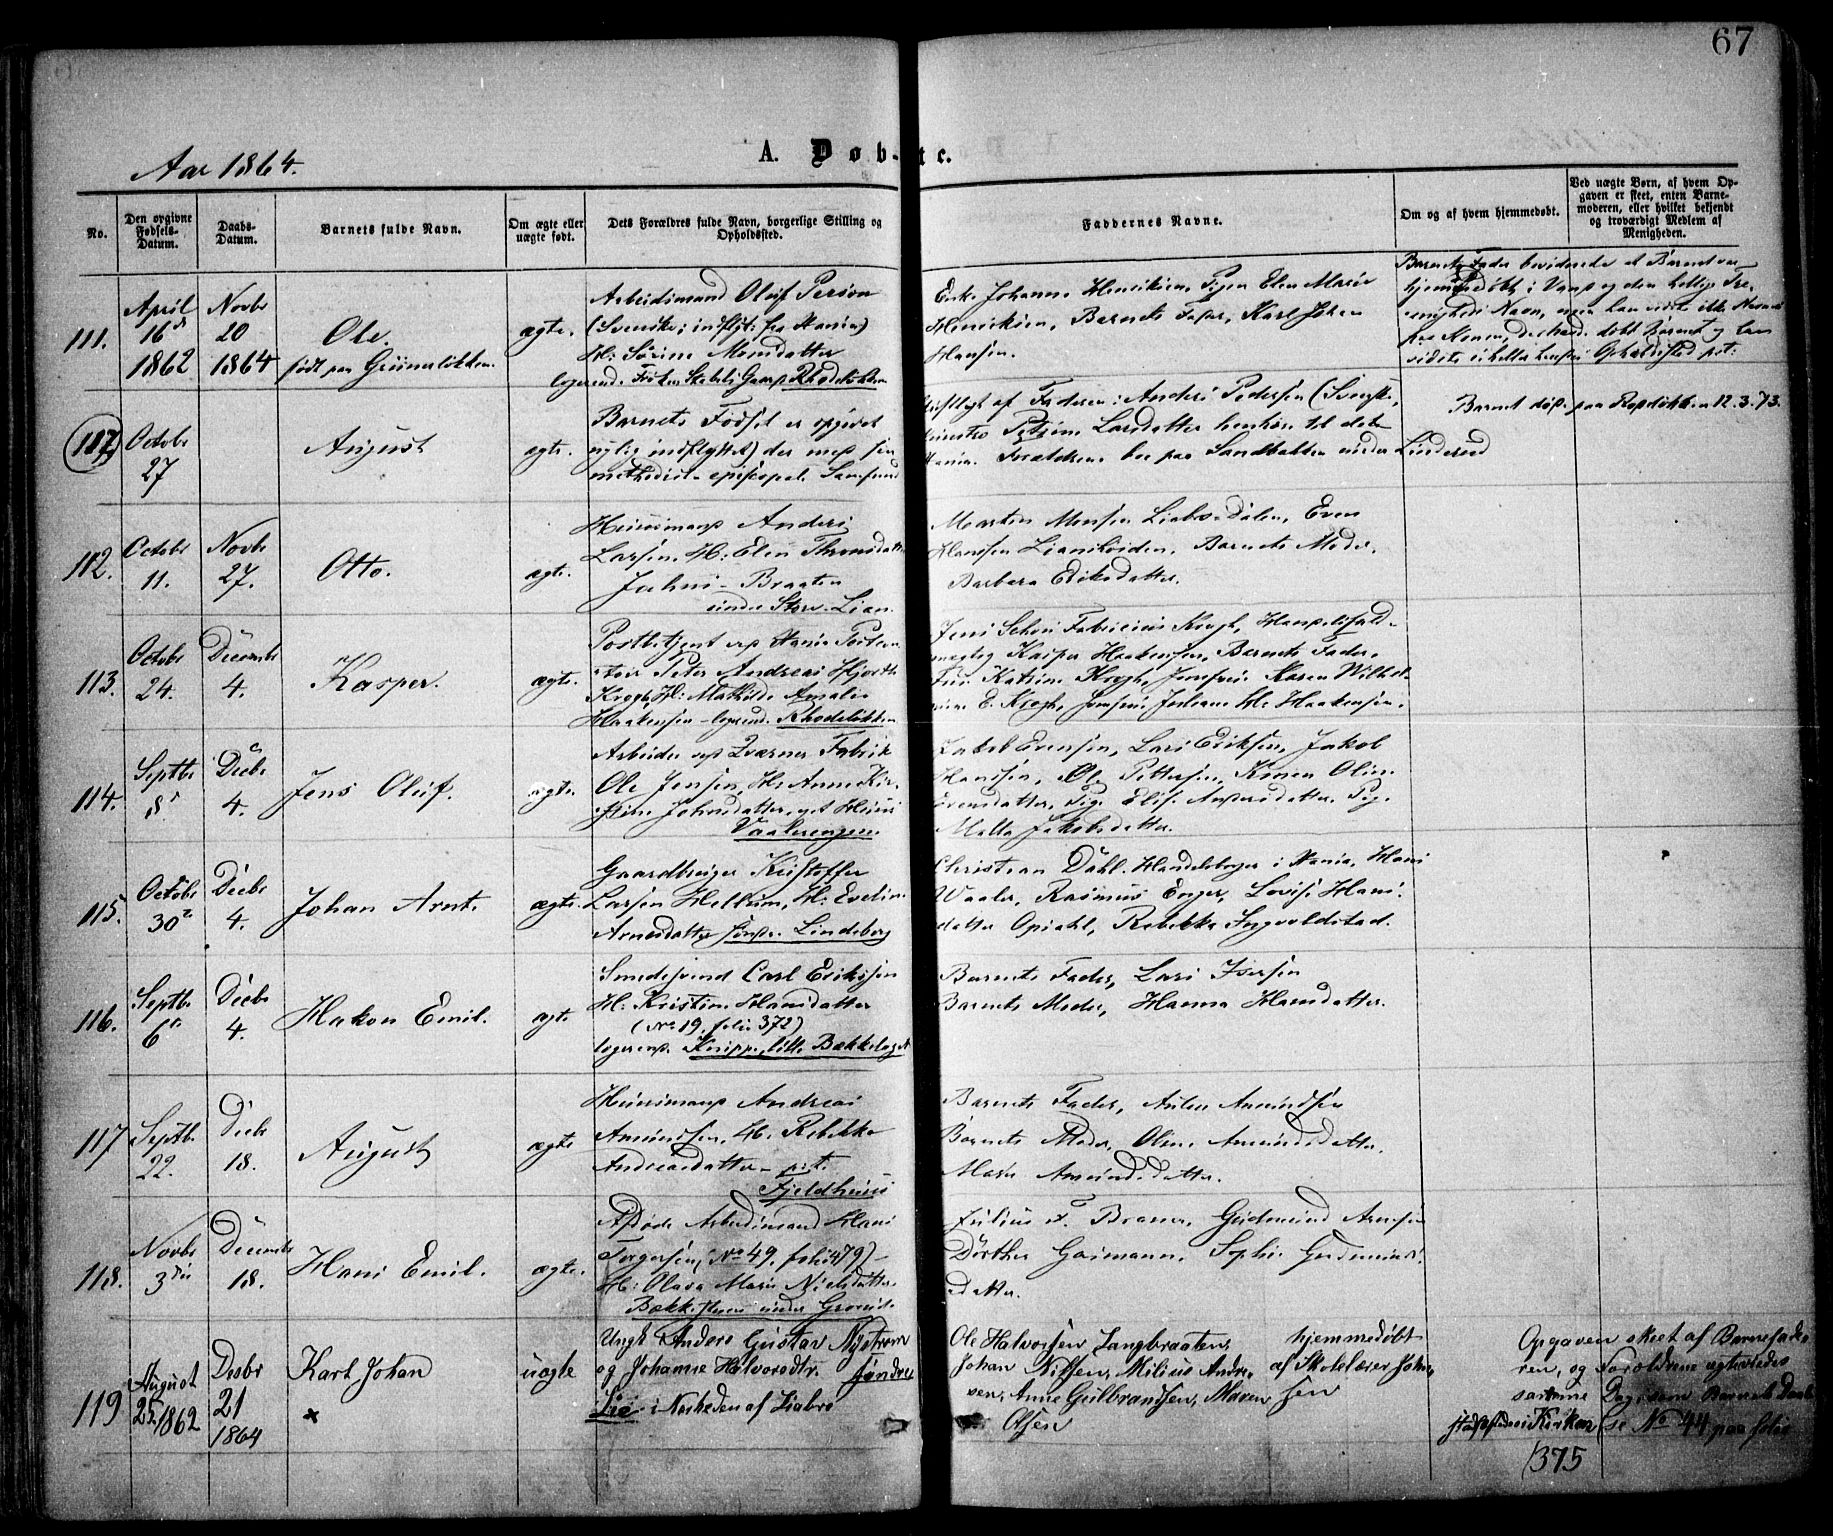 67
Aar 1864.
A. Døb-te.
No.
Den opgivne Fødsels-Datum.
Daabs-Datum.
Barnets fulde Navn.
Om ægte eller uægte født.
Dets Forældres fulde Navn, borgerlige Stilling og Opholdssted.
Faddernes Navne.
Om og af hvem hjemmedøbt.
Ved uægte Børn, af hvem Opgaven er skeet, enten Barnemoderen, eller hvilket bekjendt og troværdigt Medlem af Menigheden.
111.
April 16de 1862
Novbr 20 1864
Ole.
født paa Grünerløkken.
ægte.
Arbeidsmand Oluf Person
(Svensk; indflyt: fra
H: Sørine Monsdatter
logerend.
Rhodeløkken
Enke Johanne Henriksen, Pigen Elen Marie
Henriksen, Barnets Fader, Karl Johan
Hansen.
Barnets Fader bevidnede at Barnet var
hjemmedøbt i Vand og den hellige Tre-
enigheds Navn, men han vidste ikke Navnet
117
Octobr 27
August
ægte.
Barnets Fødsel er opgivet
nylig indflyttet) der med sin
methodist-episcopal. Samfund
af Faderen: Anders Pedersen (Svensk,
Larsdatter henhøre til det
Forældrene boe paa Sandbakken under Linderud
Barnet døpt paa Rodeløkken 12.3.73.
112.
Octobr 11.
Novbr 27.
Otto.
ægte.
Huusmand Anders
Larsen, H: Elen Thronsdatter
Jahns-Braaten
under Store-Lian.
Morten Monsen Liabro-Dalen, Even
Hansen Lianskoiden, Barnets Moder,
Barbara Eriksdatter.
113.
Octobr 24.
Decembr 4.
Kasper.
ægte.
Postbetjent ved
Peter Andreas Hjorth
Krogh, H: Mathilde Amalie
Haakensen - logerend. Rhodeløkken
Jens Schou Fabricius Krogh, Handelsfuld-
mægtig Kasper Haakensen, Barnets Fader,
Fru Katrine Krogh, Jomfru Karen Wilhel-
mine E. Krogh, Jomfru Johane H: Haakensen.
114.
Septbr 8
Decbr 4.
Jens Oluf.
ægte.
Arbeider ved Kværner Fabrik
Ole Jensen, H: Anne Kir-
stine Johnsdatter, et Huus
Vaalerengen.
Jakob Evensen, Lars Eriksen, Jakob
Hansen, Ole Pettersen, Konen Oline
Evensdatter, Pige Elise Andersdatter, Pige
Mette Jakobsdatter.
115.
Octobr 30te
Decbr 4.
Johan Arnt.
ægte.
Gaardbruger Kristoffer
Larsen Hellum, H: Eveline
Arnesdatter søndre Lindeberg
Christian Dahl, Handelsborger i Xania, Hans
Vaaler, Rasmus Enger, Lovise Hans-
datter Opsahl, Rebekka Ingvoldstad.
116.
Septbr 6te
Decbr 4.
Hakon Emil.
ægte
Smedesvend Carl Eriksen
H: Kristine Hansdatter
(No 19, folio 372)
logerend. Knippe, lille Bækkelaget
Barnets Fader, Lars Isersen
Barnets Moder, Hanna Hansdatter.
117
Septbr. 22.
Decbr 18.
August
ægte
Huusmand Andreas
Amundsen, H: Rebekka
Andreasdatter - pt.
Fjeldhuus
Barnets Fader, Anton Amundsen
Barnets Moder, Oline Amundsdatter
Maria Amundsdatter.
118.
Novbr 3die
Decembr 18.
Hans Emil.
ægte.
Afdøde Arbeidsmand Hans
Torgersen, (No 49, folio 479)
H: Olava Marie Nielsdatter
Bækkestuen under Grorud.
Julius F. Braner, Gudmund Arnesen
Dorthea Gasmann, Sophie Gudmunds-
datter.
119
August 25. 1862
Desbr 21 1864
Karl Johan
×
uægte
Ungk Anders Gustav Nystrøm
og Johanne Halvorsdtr. søndre
Lie i Nærheden af Liabro
Ole Halvorsen Langbraaten,
Johan Nilsen, Milius Andre-
sen, Anne Gulbrandsen, Maren
Olsen
hjemmedøbt
af Skolelærer Johan-
sen
Opgaven skeet af Barnefade-
ren, og Forældrene egtviedes
samme Dag, som Barnets Daab
stadfæstedes i Kirken (se No 44 paa folio
375